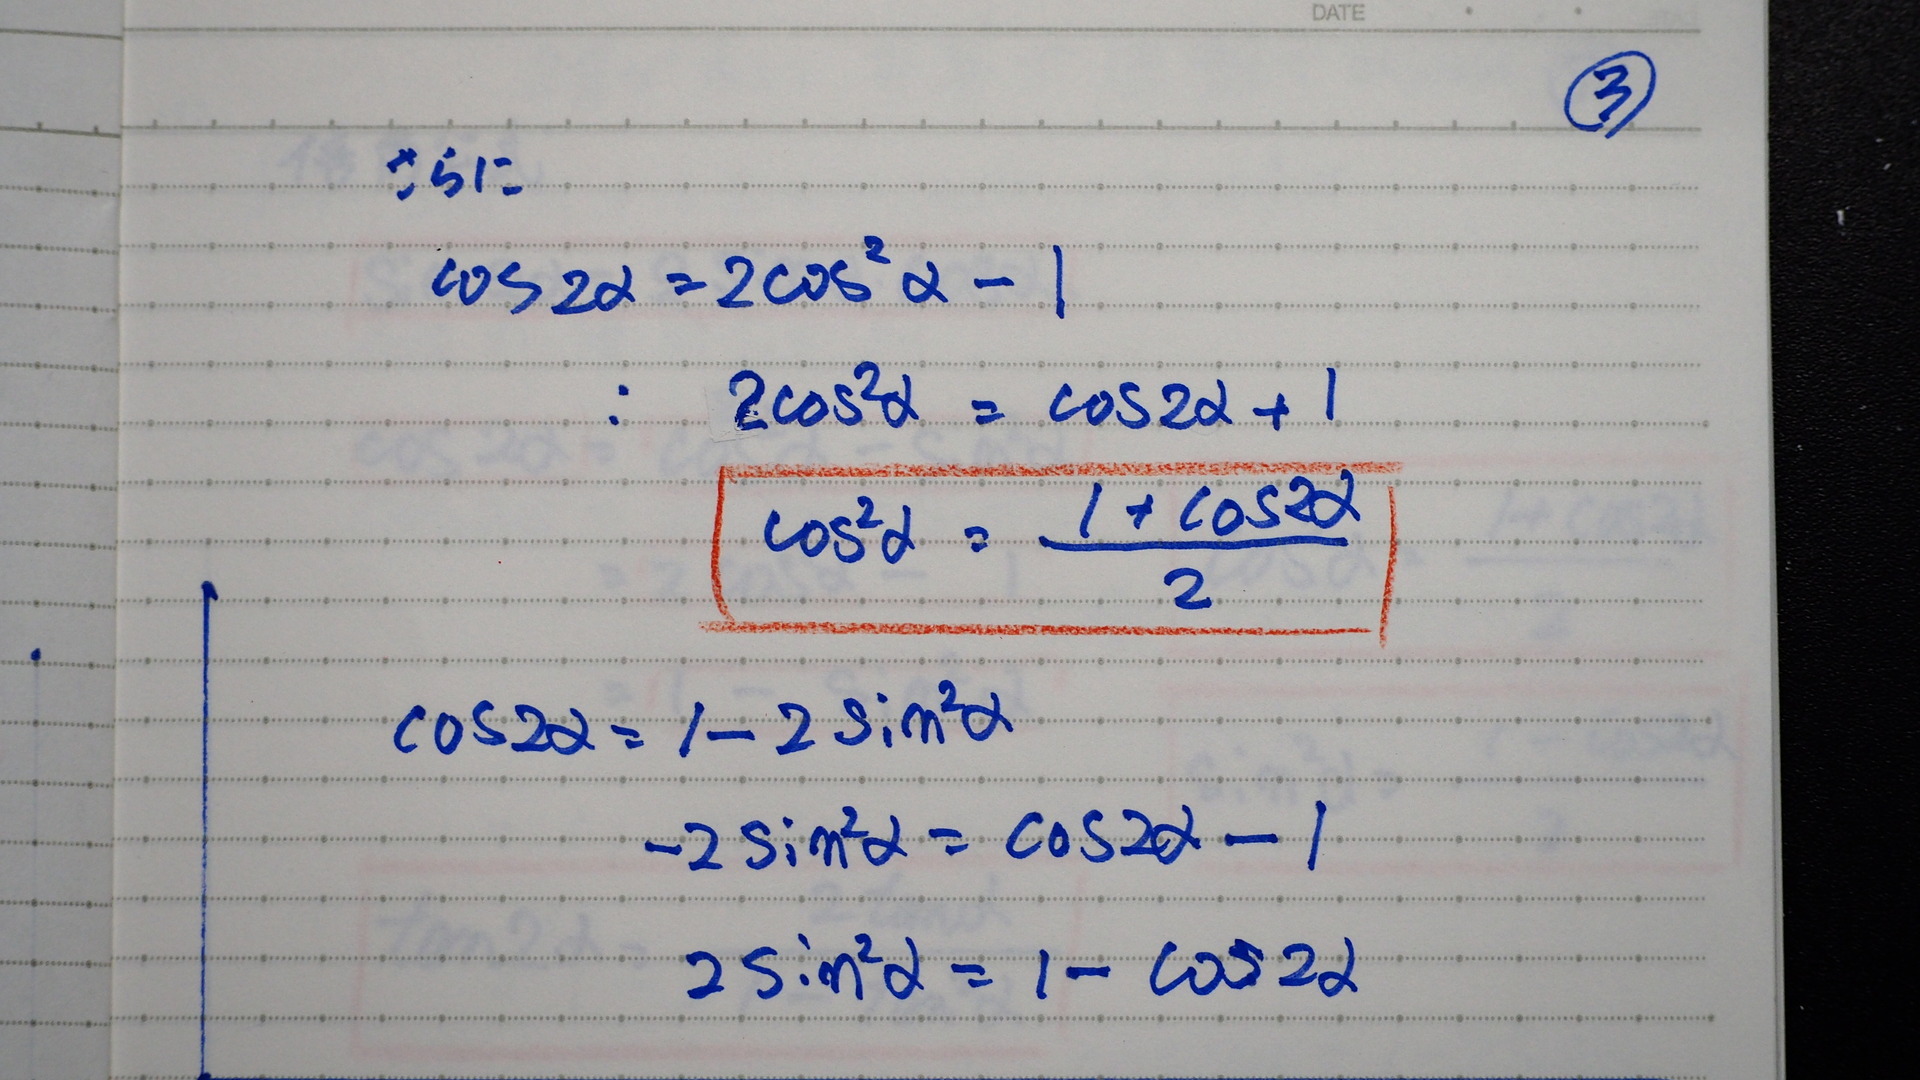 DATE
③
さらに
cos2α = 2cos²α - 1
: 2cos²α = cos2α + 1
cos²α = (1 + cos2α)/2
cos2α = 1 - 2sin²α
-2sin²α = cos2α - 1
2sin²α = 1 - cos2α